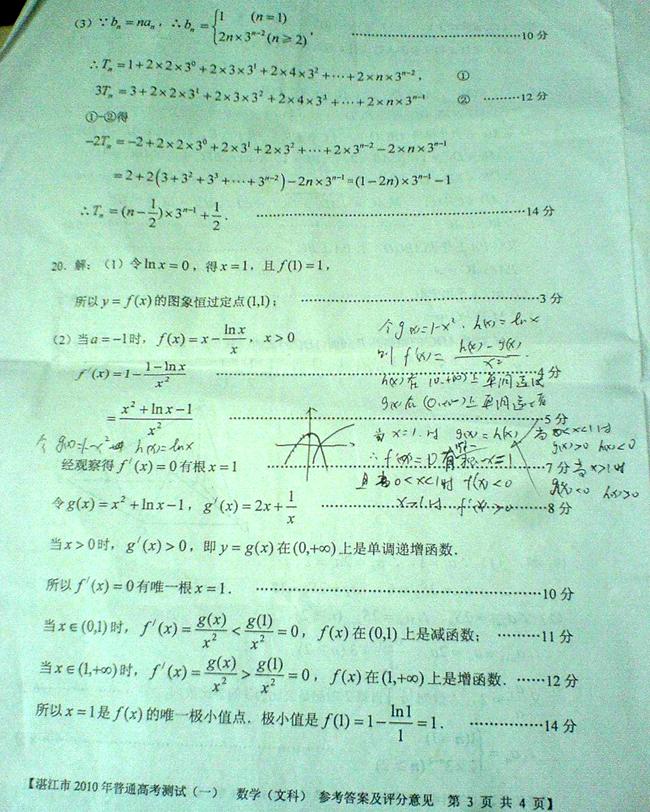 (3) ∵bₙ=naₙ, ∴bₙ={1 (n=1) 2n×3ⁿ⁻²(n≥2), ……………………10分
∴Tₙ=1+2×2×3⁰+2×3×3¹+2×4×3²+⋯+2×n×3ⁿ⁻², ①
3Tₙ=3+2×2×3¹+2×3×3²+2×4×3³+⋯+2×n×3ⁿ⁻¹ ② ………12分
①-②得
-2Tₙ=-2+2×2×3⁰+2×3¹+2×3²+⋯+2×3ⁿ⁻²-2×n×3ⁿ⁻¹
=2+2(3+3²+3³+⋯+3ⁿ⁻²)-2n×3ⁿ⁻¹=(1-2n)×3ⁿ⁻¹-1
∴Tₙ=(n-1/2)×3ⁿ⁻¹+1/2. ……………………14分
20. 解:(1)令ln x=0,得x=1,且f(1)=1,
所以y=f(x)的图象恒过定点(1,1); ……………………3分
令g(x)=1-x², h(x)=lnx
(2)当a=-1时,f(x)=x-ln x/x,x>0
则f'(x)=h(x)-g(x)/x²
f'(x)=1-1-ln x/x² ……………………4分
h(x)在(0,+∞)上单调递
g(x)在(0,+∞)上单调递
=x²+ln x-1/x² ……………………5分
当x=1时 g(x)=h(x) 当0<x<1时
g(x)>0 h(x)<0
令g(x)=1-x² h(x)=lnx
∴f'(x)=0有 x=1
经观察得f'(x)=0有根x=1 ……………………7分
当x>1时
g(x)<0 h(x)>0
且当0<x<1时 f'(x)<0
x>1时 f'(x)>0
令g(x)=x²+ln x-1,g'(x)=2x+1/x ……………………8分
当x>0时,g'(x)>0,即y=g(x)在(0,+∞)上是单调递增函数.
所以f'(x)=0有唯一根x=1. ……………………10分
当x∈(0,1)时,f'(x)=g(x)/x²<g(1)/x²=0,f(x)在(0,1)上是减函数; ………11分
当x∈(1,+∞)时,f'(x)=g(x)/x²>g(1)/x²=0,f(x)在(1,+∞)上是增函数. ……12分
所以x=1是f(x)的唯一极小值点,极小值是f(1)=1-ln1/1=1. ……………14分
【湛江市2010年普通高考测试(一) 数学(文科) 参考答案及评分意见 第3页 共4页】